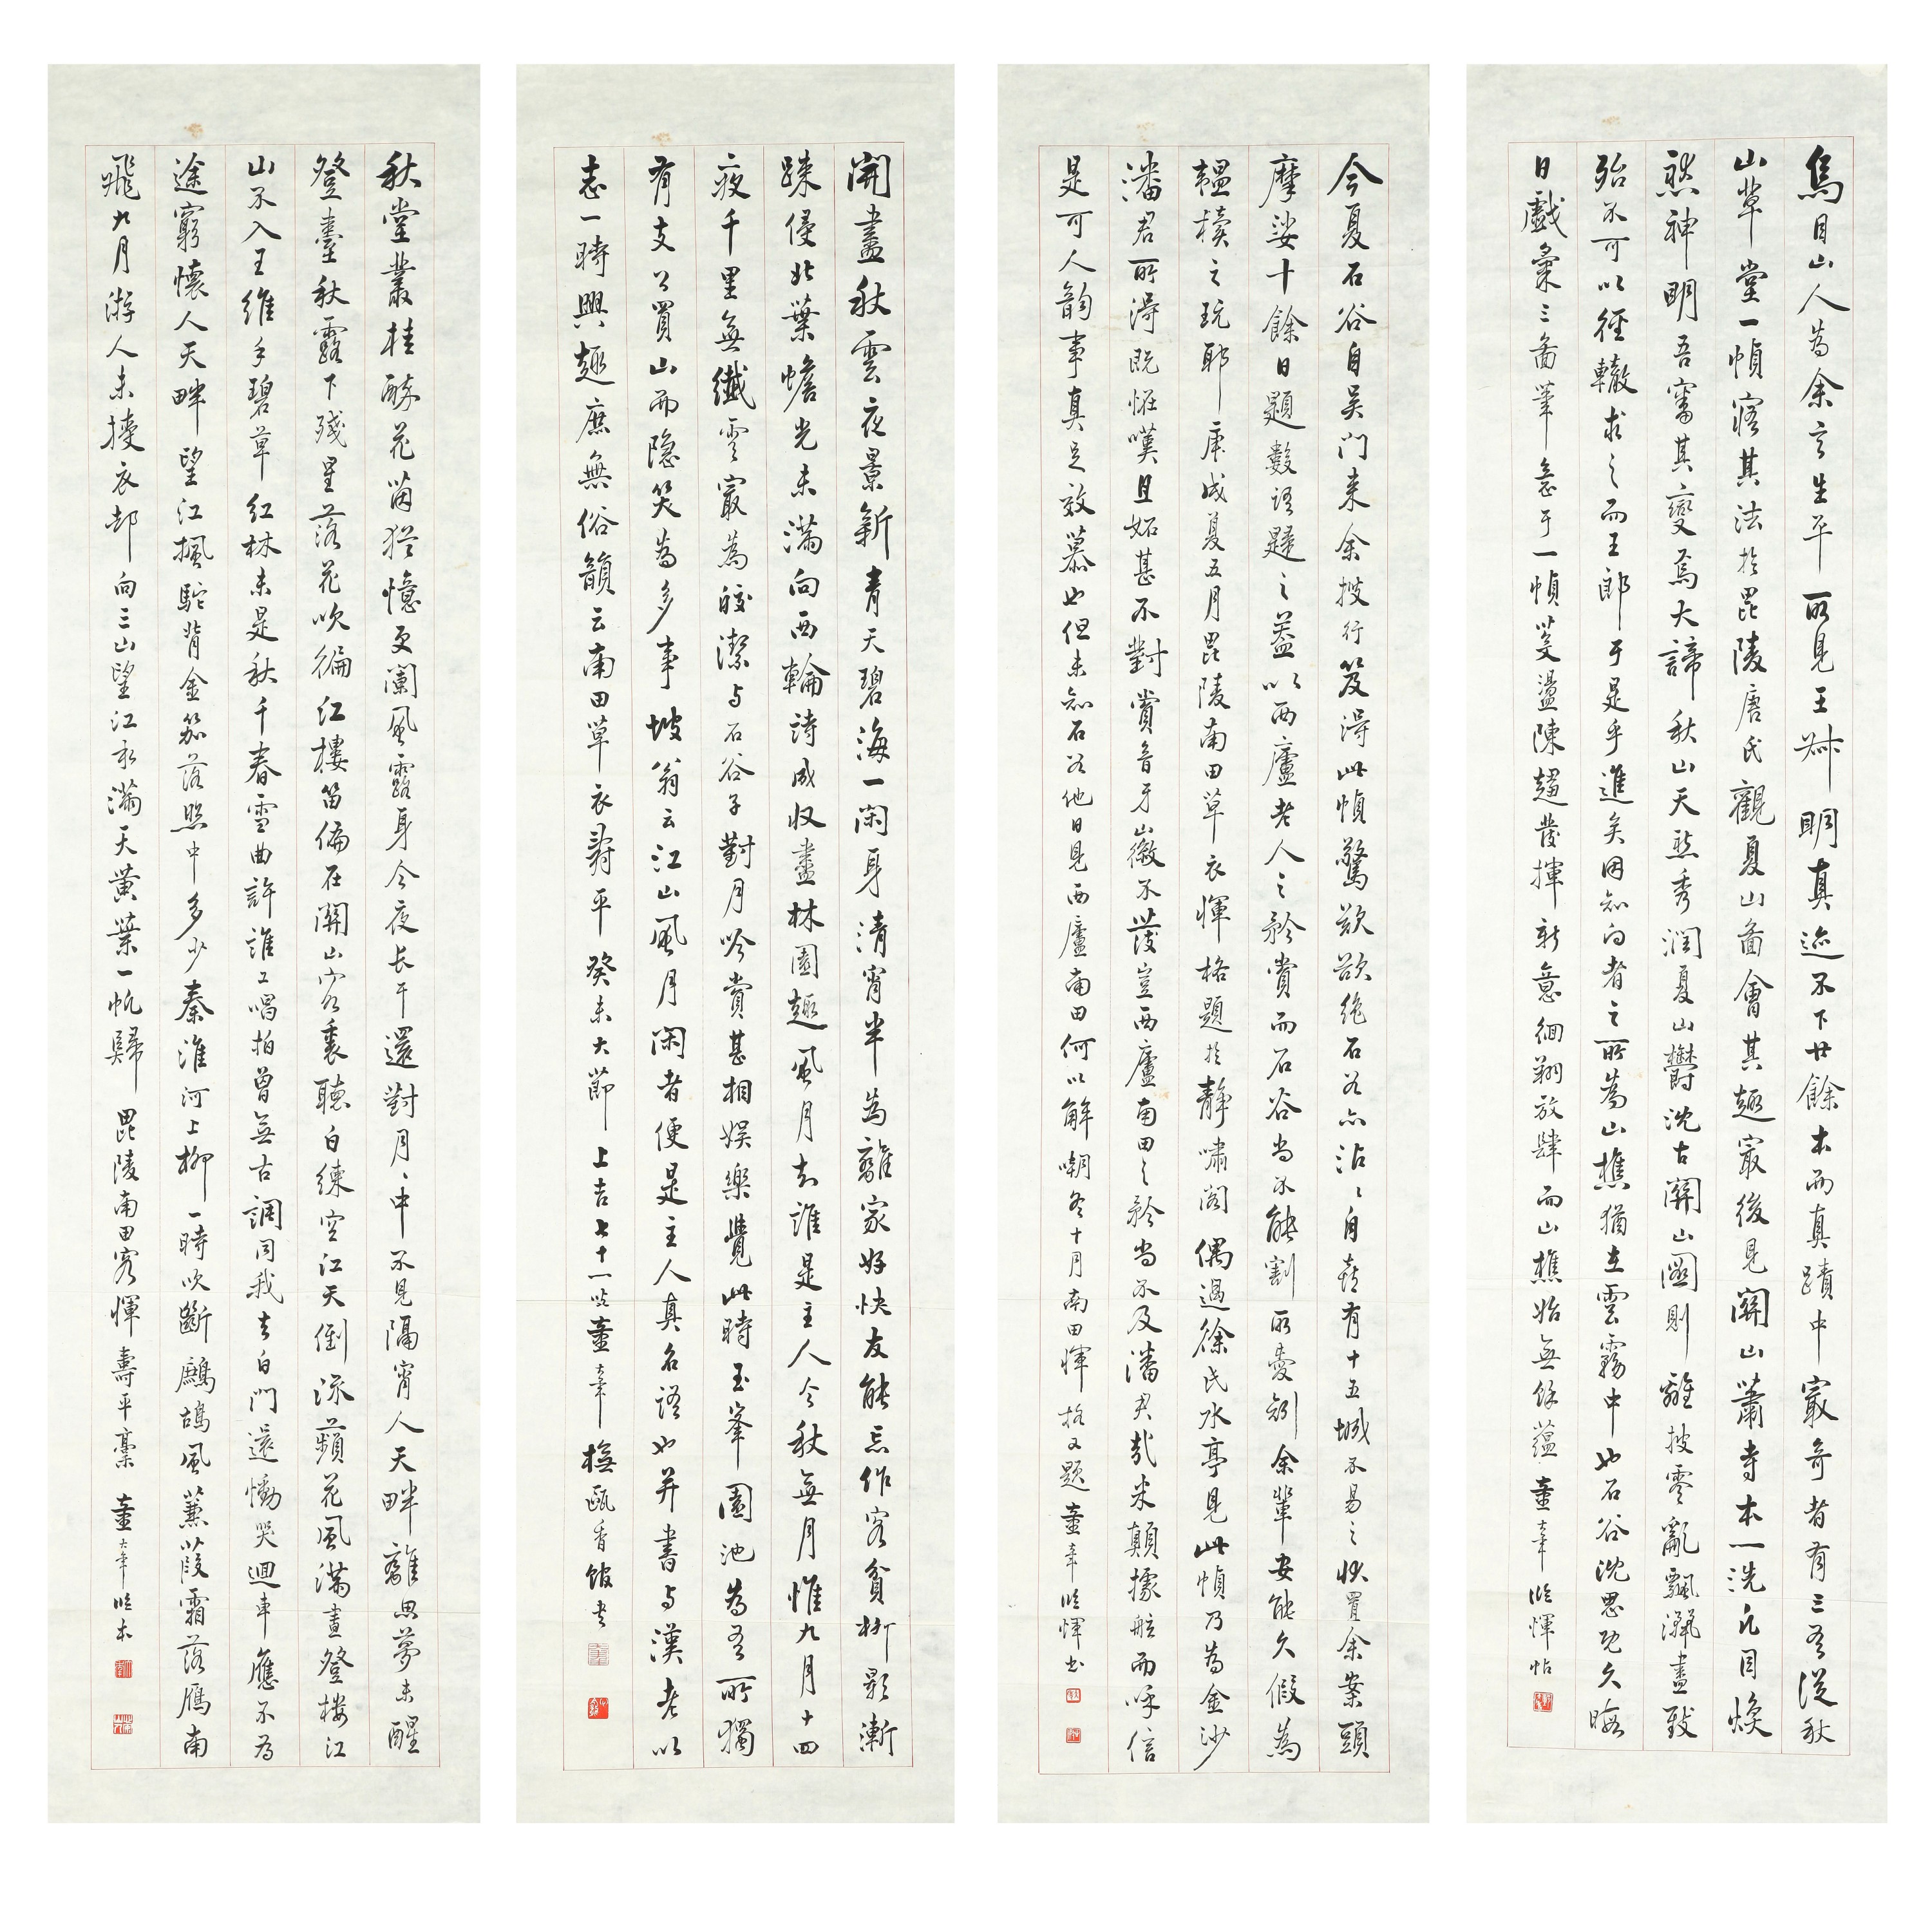 烏目山人為余言生平所見王叔明真迹不下廿餘本而真蹟中最奇者有三吾從秋
山草堂一幀寤其法於毘陵唐氏觀夏山圖會其趣最後見關山蕭寺本一洗凡目煥
然神明吾窮其變焉大諦秋山天然秀潤夏山鬱沈古關山圖則離披零亂飄灑盡致
殆不可以徑轍求之而王郎于是乎進矣因知向者之所為山樵猶在雲霧中也石谷沈思既久暇
日戲彙三圖筆意于一幀蕩盪陳趨發揮新意徊翔放肆而山樵始無餘蘊 董大年臨惲帖
今夏石谷自吳門來余搜行笈得此幀驚歎欲絕石谷亦沾沾自喜有十五城不易之狀置余案頭
摩娑十餘日題數語題之蓋以西廬老人之矜賞而石谷尚不能割所愛矧余輩安能久假為
韞櫝之玩耶庚戌夏五月毘陵南田草衣惲格題於靜嘯閣偶過徐氏水亭見此幀乃為金沙
潘君所得既怪嘆且妬甚不對賞音牙徽不發豈西廬南田之矜尚不及潘君哉米顛據舷而呼信
是可人韻事真足效慕也但未知石谷他日見西廬南田何以解嘲冬十月南田惲格又題董大年臨惲書
開盡秋雲夜景新青天碧海一閑身清宵半為離家好快友能忘作客貧柳影漸
疎侵北葉蟾光未滿向西輪詩成收盡林園趣風月知誰是主人今秋無月惟九月十四
夜千里無纖雲最為皎潔与石谷子對月吟賞甚相娛樂覺此時玉峯園池為吾所獨
有支公買山而隱笑為多事坡翁云江山風月閑者便是主人真名語也并書与漢老以
志一時興趣庶無俗韻云南田草衣壽平 癸未大節上吉七十一叟董大年橅甌香館書
秋堂叢桂醉花茵猶憶更闌風露身今夜長干還對月月中不見隔宵人天畔離思夢未醒
登臺秋露下殘星落花吹徧紅樓笛偏在關山客裏聽白練空江天倒流蘋花風滿晝登樓江
山不入王維手碧草紅林未是秋千春雪曲許誰工唱拍曾無古調同我去白門還慟哭迴車應不為
途窮懷人天畔望江楓駝背金笳落照中多少秦淮河上柳一時吹斷鷓鴣風蒹葭霜落鴈南
飛九月游人未授衣却向三山望江水滿天黃葉一帆歸 毘陵南田客惲壽平藁 董大年臨本